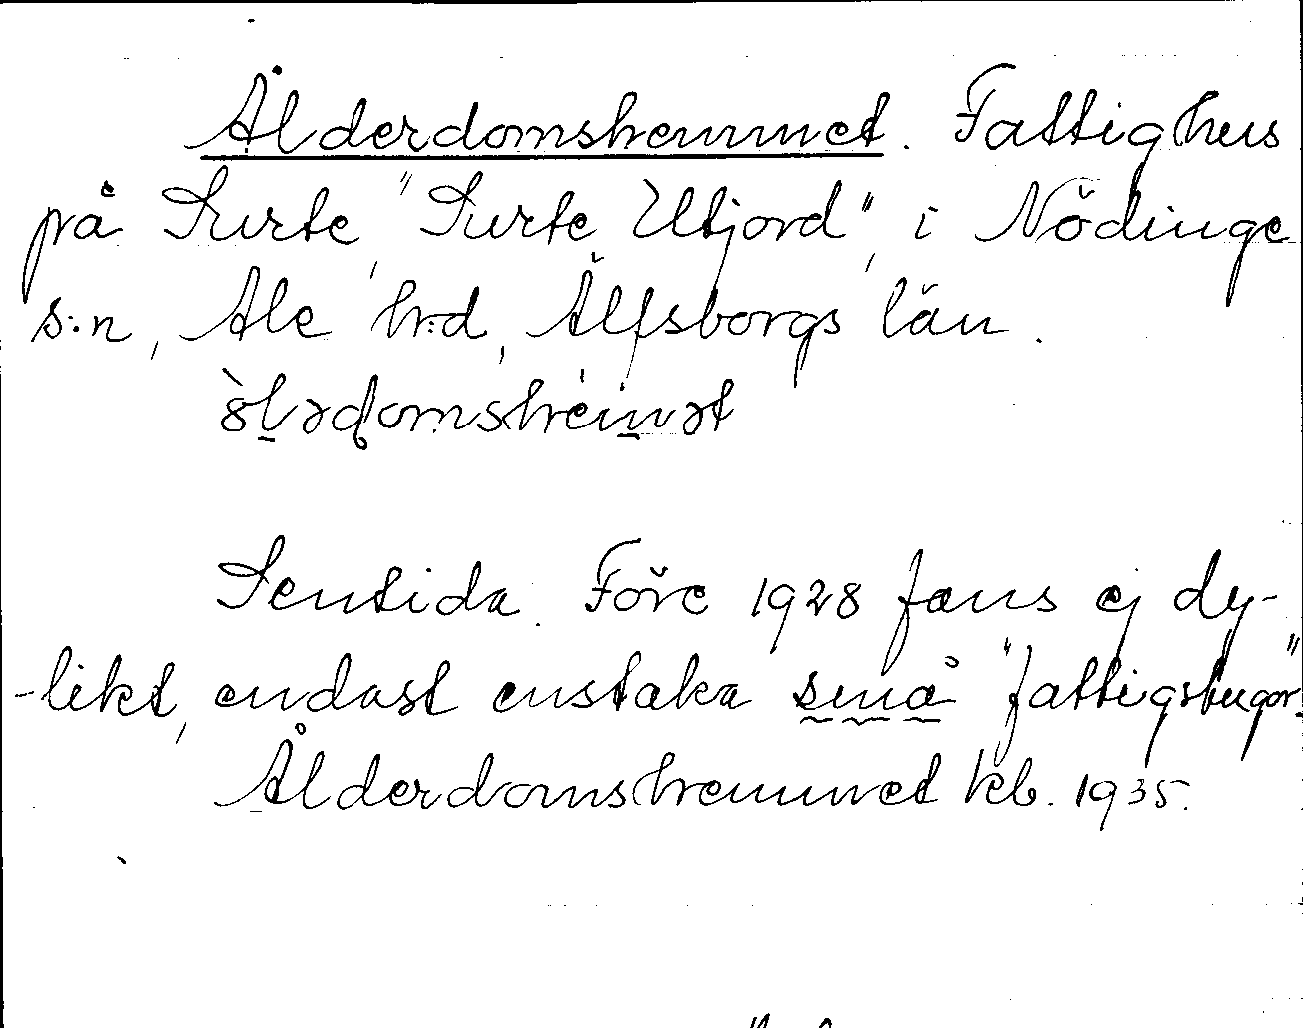 Ålderdomshemmet. Fattighus
på Surte, "Surte Utjord", i Nödinge
s:n, Ale h:d, Älfsborgs län.
Sentida. Före 1928 fans ej dy-
-likt, endast enstaka små "fattigstugor".
Ålderdomshemmet kb. 1935.